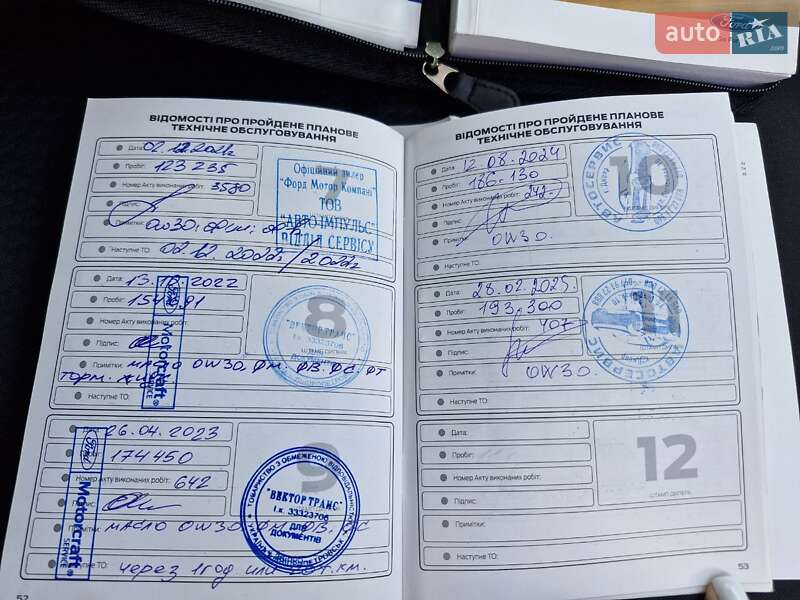 Ford
auto RIA.com
ВІДОМОСТІ ПРО ПРОЙДЕНЕ ПЛАНОВЕ
ТЕХНІЧНЕ ОБСЛУГОВУВАННЯ
7
Дата:
Пробіг: 123 235
Номер Акту виконаних робіт: 3580
Підпис:
Примітки: 0w30,
Наступне ТО: 02.12.2022
Офіційний дилер
"Форд Мотор Компані"
ТОВ
"АВТО ІМПУЛЬС"
ВІДДІЛ СЕРВІСУ
8
Дата: 13.10.2022
Пробіг:
Номер Акту виконаних робіт:
Підпис:
Примітки: масло 0W30, ФМ. ФВ. ФС. ФТ
торм.
Наступне ТО:
Ford Motorcraft®
SERVICE
"ВЕКТОР ТРАНС"
і.к. 33323706
9
Дата: 26.04.2023
Пробіг: 174 450
Номер Акту виконаних робіт: 642
Підпис:
Примітки: масло 0W30
Наступне ТО: через 1 год или
Ford Motorcraft®
SERVICE
ТОВАРИСТВО З ОБМЕЖЕНОЮ ВІДПОВІДАЛЬНІСТЮ
"ВЕКТОР ТРАНС"
і.к. 33323706
ДЛЯ
ДОКУМЕНТІВ
52
ВІДОМОСТІ ПРО ПРОЙДЕНЕ ПЛАНОВЕ
ТЕХНІЧНЕ ОБСЛУГОВУВАННЯ
10
Дата: 12.08.2024
Пробіг: 186.130
Номер Акту виконаних робіт: 242.
Підпис:
Примітки: 0W30.
Наступне ТО:
АВТОСЕРВІС
11
Дата: 28.02.2025.
Пробіг: 193,300
Номер Акту виконаних робіт: 407
Підпис:
Примітки: 0W30.
Наступне ТО:
АВТОСЕРВІС
12
Дата:
Пробіг:
Номер Акту виконаних робіт:
Підпис:
Примітки:
Наступне ТО:
ШТАМП ДИЛЕРА
53